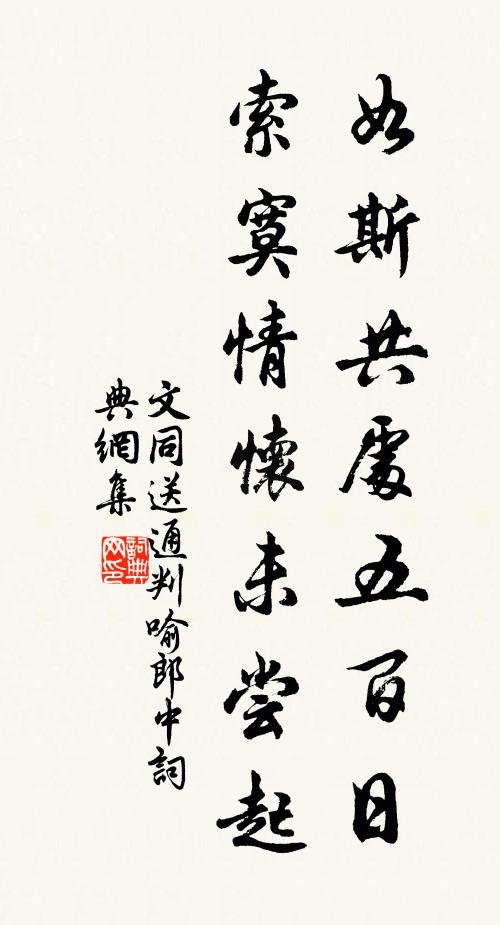 如斯共處五百日
索寞情懷未嘗起
文同送通判喻郎中詞
典網集
詞典
网印